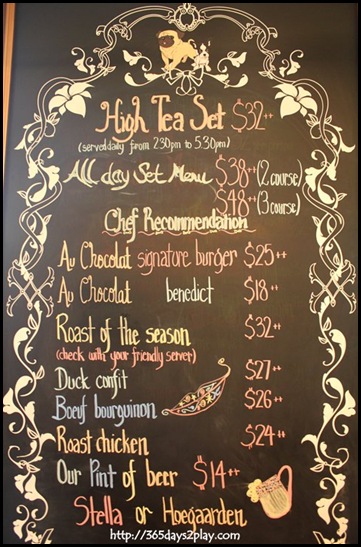 High Tea Set $32++
(served daily from 2.30pm to 5.30pm)
All day Set Menu $38++ (2 course)
$48++ (3 course)
Chef Recommendation
Au Chocolat signature burger $25++
Au Chocolat benedict $18++
Roast of the season $32++
(check with your friendly server)
Duck confit $27++
Bœuf bourguinon $26++
Roast chicken $24++
Our Pint of beer $14++
Stella or Hoegaarden
http://365days2play.com